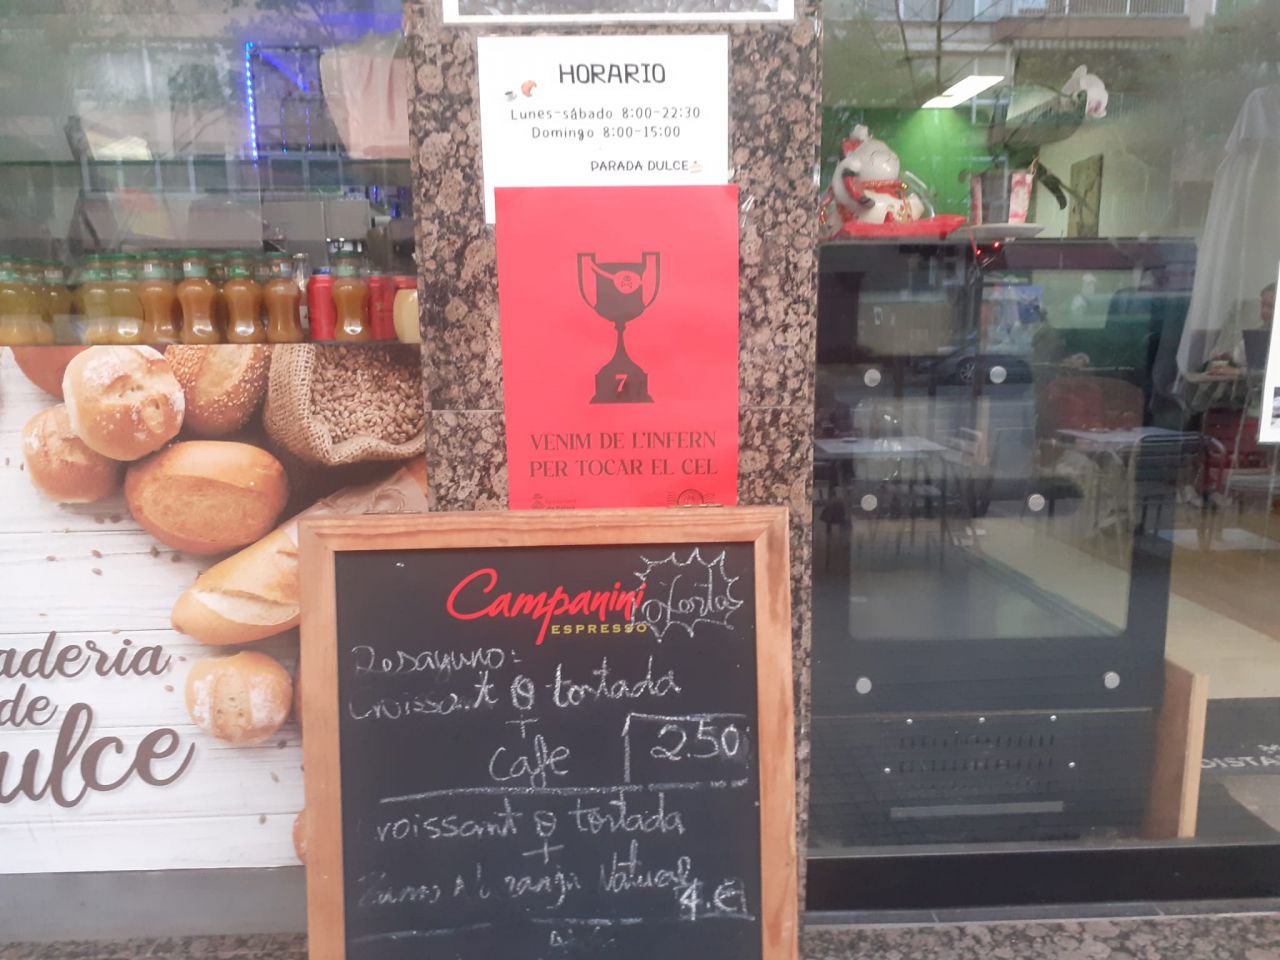 HORARIO
Lunes-sábado 8:00-22:30
Domingo 8:00-15:00
PARADA DULCE
7
VENIM DE L'INFERN
PER TOCAR EL CEL
aderia
de
ulce
Campanini
ESPRESSO
oferta
Desayuno:
croissant o tostada
+
Caffe
2.50
croissant o tostada
+
Zumo Naranja Natural
4.€
DISTA